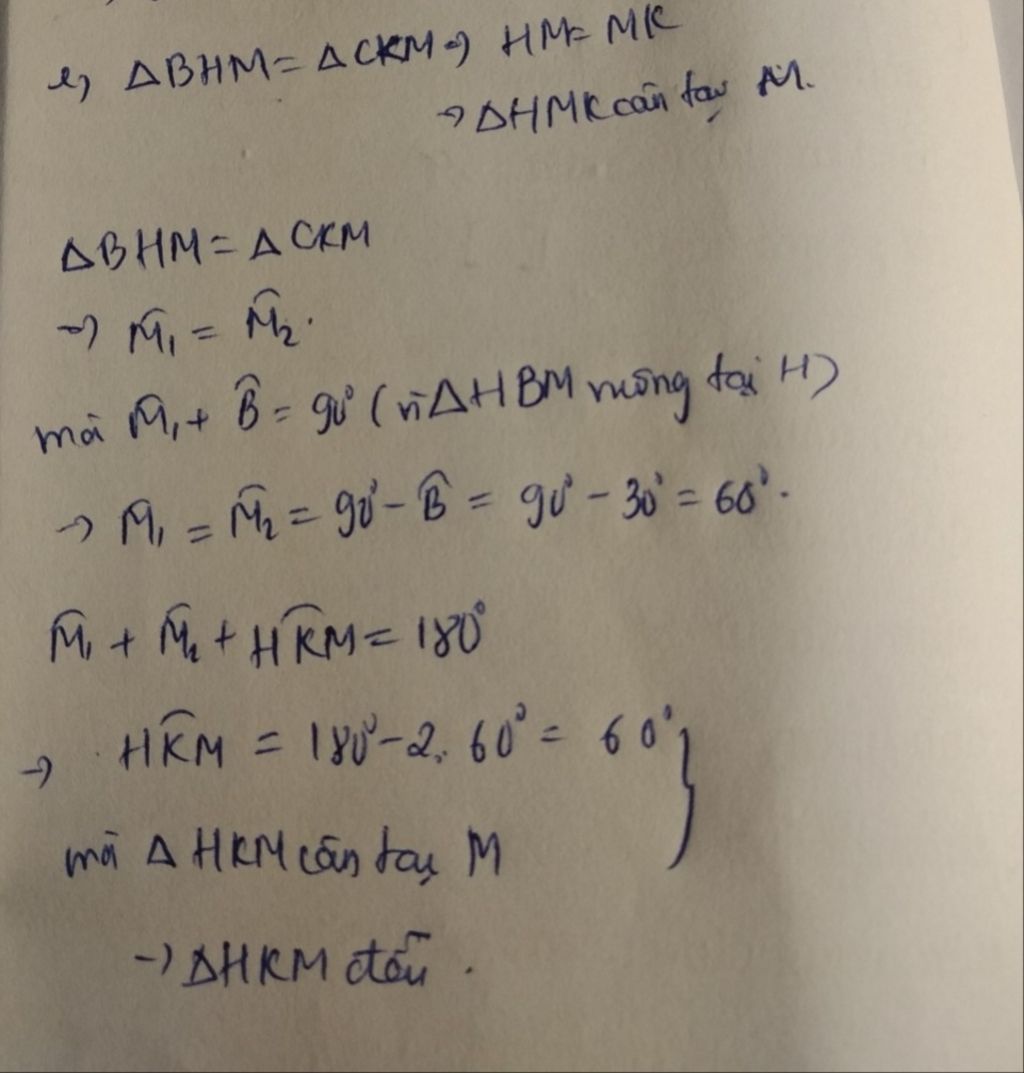 e, ΔBHM = ΔCKM → HM = MK
→ ΔHMK cân tại M.
ΔBHM = ΔCKM
→ M̂₁ = M̂₂.
mà M̂₁ + B̂ = 90° (vì ΔHBM vuông tại H)
→ M̂₁ = M̂₂ = 90° - B̂ = 90° - 30° = 60°.
M̂₁ + M̂₂ + HK̂M = 180°
→ HK̂M = 180° - 2. 60° = 60° }
mà Δ HKM cân tại M
→ ΔHKM đều.